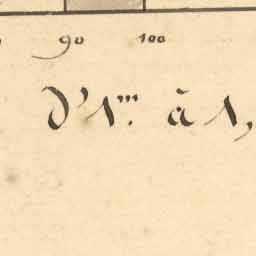 90 100
d'1.m à 1,